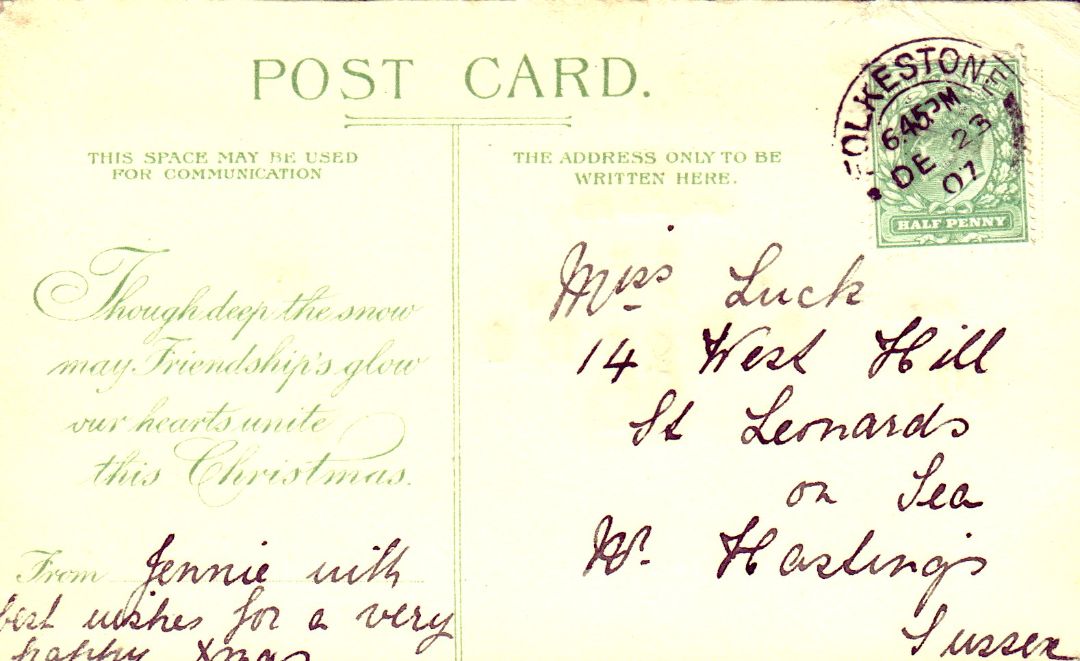 POST CARD.
THIS SPACE MAY BE USED
FOR COMMUNICATION
THE ADDRESS ONLY TO BE
WRITTEN HERE.
FOLKESTONE
6.45PM
DE 23
07
HALF PENNY
Though deep the snow
may Friendship's glow
our hearts unite
this Christmas.
From Jennie with
best wishes for a very
happy Xmas
Miss Luck
14 West Hill
St Leonards
on Sea
Nr. Hastings
Sussex